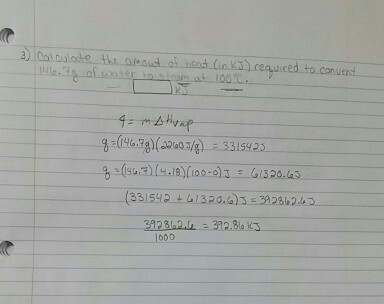 3) Calculate the amout of heat (in KJ) required to convert
146.7g of water to steam at 100°C.
KJ
q = m ΔHvap
q = (146.7g)(2260 J/g) = 331542J
q = (146.7)(4.18)(100-0)J = 61320.6J
(331542 + 61320.6)J = 392862.6J
392862.6 = 392.86 KJ
1000